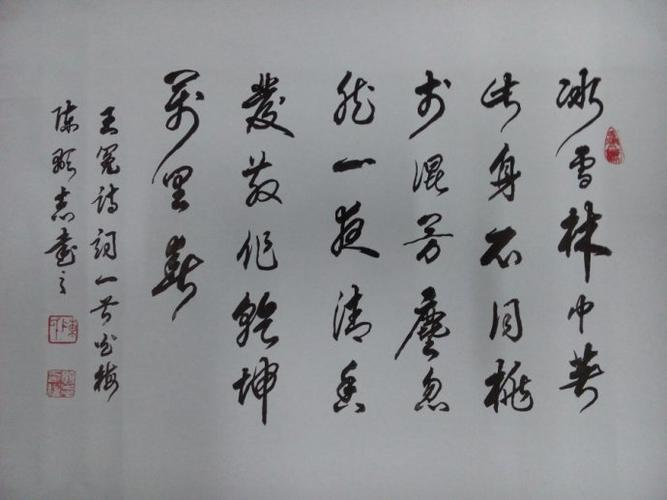 冰雪林中著
此身不同桃
李混芳塵忽
然一夜清香
發散作乾坤
萬里春
王冕詩詞一首咏梅
陈志書之